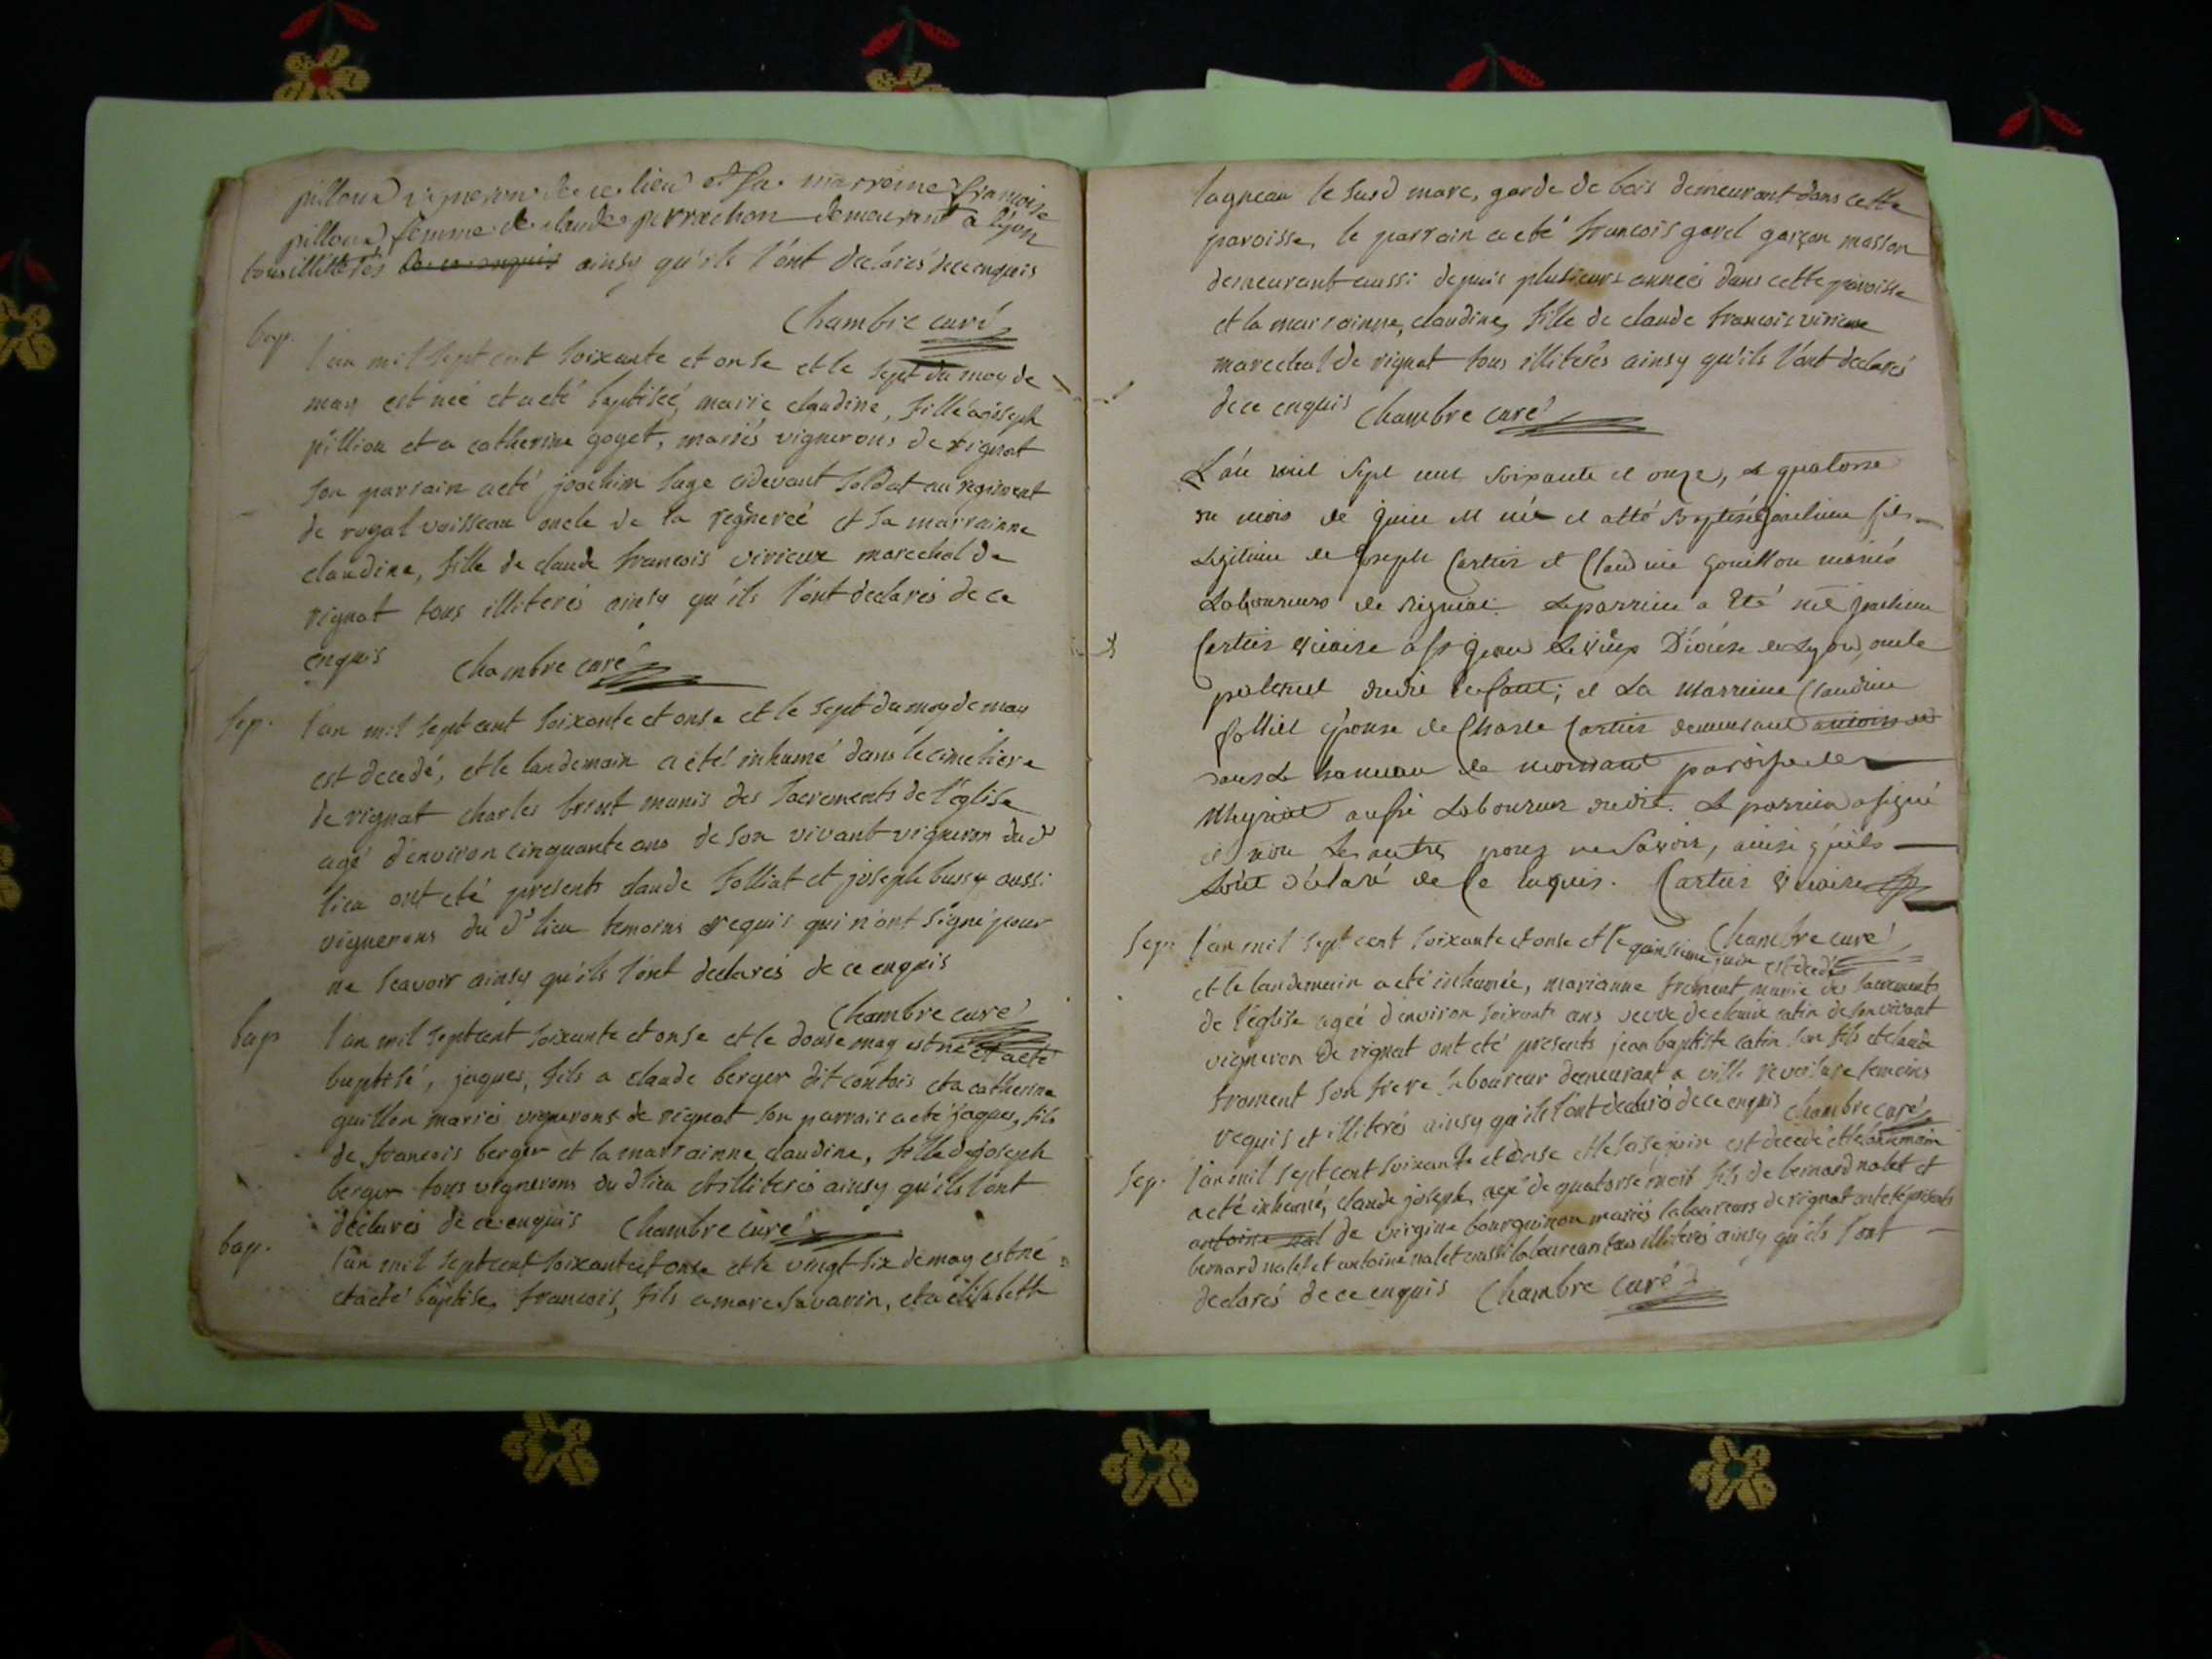 pilloux vigneron de ce lieu et sa marraine françoise
pilloux femme de claude perrachon demeurant a lyon
tous illitterés de ce enquis ainsy qu'ils l'ont declarés de ce enquis
Chambre curé
bap.
l'an mil sept cent soixante et onse et le sept du moy de
may est neé et a eté baptiseé, marie claudine, fille a joseph
pillion et a catherine goyet, mariés vignerons de rignat
son parrain a eté joachim sage cidevant soldat au regiment
de royal vaisseau oncle de la et sa marrainne
claudine, fille de claude francois virieux marechal de
rignat tous illiterés ainsy qu'ils l'ont declarés de ce
enquis Chambre curé
sep. l'an mil sept cent soixante et onse et le sept du moy de may
est decedé, et le landemain a eté inhumé dans le cimetiere
de rignat charles brint munis des sacrements de l'église
agé d'environ cinquante ans de son vivant vigneron du d
lieu ont eté presents claude folliat et joseph bussy aussi
vignerons du d lieu temoins requis qui n'ont signé pour
ne scavoir ainsy qu'ils l'ont declarés de ce enquis
Chambre curé
bap l'an mil sept cent soixante et onse et le douse may est né et a eté
baptisé, jaques, fils a claude berger dit contois et a catherine
guillon mariés vignerons de rignat son parrain a eté jaques, fils
de francois berger et la marrainne claudine, fille de joseph
berger tous vignerons du d lieu et illiterés ainsy qu'ils l'ont
declarés de ce enquis Chambre curé
bap. l'an mil sept cent soixante et onse et le vingt six de may est né
et a eté baptisé, francois, fils a marc savarin, et a elisabeth
lagneau le susd marc, garde de bois demeurant dans cette
paroisse, le parrain a eté francois garel garçon masson
demeurant aussi depuis plusieurs années dans cette paroisse
et la marrainne, claudine, fille de claude francois virieux
marechal de rignat tous illiterés ainsy qu'ils l'ont declarés
de ce enquis Chambre curé
L'an mil sept cent soixante et onze, le quatorse
du mois de juin est né et a été Baptisé joachim fils
Legitime de joseph Cartier et Claudine Gouillon mariés
Laboureurs de Rignat. Le parrain a été joachim
Cartier vicaire a st jean Diocése de Lyon, oncle
paternel dudit enfant; et La Marraine Claudine
folliet épouse de Charle Cartier demeurant
dans Le hameau de paroisse de
Meyriat aussi Laboureur dudit. Le parrain a signé
et non Les autres pour ne Savoir, ainsi qu'ils
L'ont déclaré de Ce enquis. Cartier vicaire
Chambre curé
sep. l'an mil sept cent soixante et onse et le quinsieme juin est decedé
et le landemain a eté inhumée, marianne froment munie des sacrements
de l'église ageé d'environ soixante ans veuve de claude catin de son vivant
vigneron de rignat ont eté presents jean baptiste catin son fils et claude
froment son frere laboureur demeurant a ville reversure temoins
requis et illiterés ainsy qu'ils l'ont declaré de ce enquis Chambre curé
sep. l'an mil sept cent soixante et onse et le sese juin est decedé et le landemain
a eté inhumé, claude joseph, agé de quatorse mois fils de bernard nalet et
de virgine bourguinon mariés laboureurs de rignat ont eté presents
bernard nalet et antoine nalet aussi laboureurs tous illiterés ainsy qu'ils l'ont
declarés de ce enquis Chambre curé